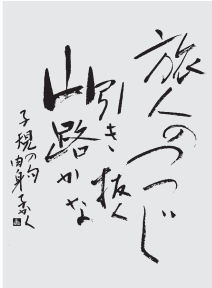 旅人のつつじ
引き抜く
山路かな
子規の句